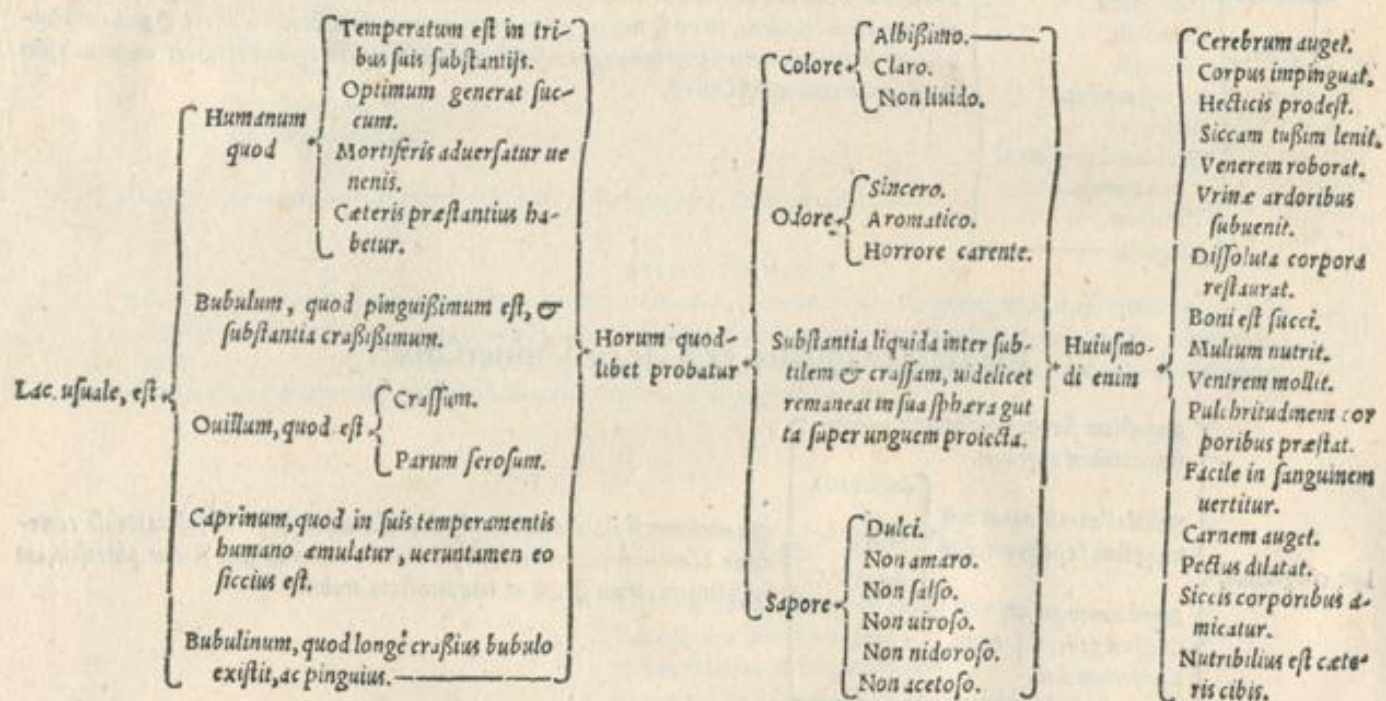 Lac usuale, est
Humanum
quod
Temperatum est in tri-
bus suis substantijs.
Optimum generat suc-
cum.
Mortiferis aduersatur ue
nenis.
Cæteris præstantius ha-
betur.
Bubulum, quod pinguißimum est, &
substantia craßißimum.
Ouillum, quod est
Crassum.
Parum serosum.
Caprinum, quod in suis temperamentis
humano æmulatur, ueruntamen eo
siccius est.
Bubulinum, quod longè craßius bubulo
existit, ac pinguius.
Horum quod-
libet probatur
Colore
Albißimo.
Claro.
Non liuido.
Odore
Sincero.
Aromatico.
Horrore carente.
Substantia liquida inter sub-
tilem & crassam, uidelicet
remaneat in sua sphæra gut
ta super unguem proiecta.
Sapore
Dulci.
Non amaro.
Non salso.
Non uiroso.
Non nidoroso.
Non acetoso.
Huiusmo-
di enim
Cerebrum auget.
Corpus impinguat.
Hecticis prodest.
Siccam tußim lenit.
Venerem roborat.
Vrinæ ardoribus
subuenit.
Dissoluta corpora
restaurat.
Boni est succi.
Multum nutrit.
Ventrem mollit.
Pulchritudinem cor
poribus præstat.
Facile in sanguinem
uertitur.
Carnem auget.
Pectus dilatat.
Siccis corporibus a-
micatur.
Nutribilius est cæte-
ris cibis.